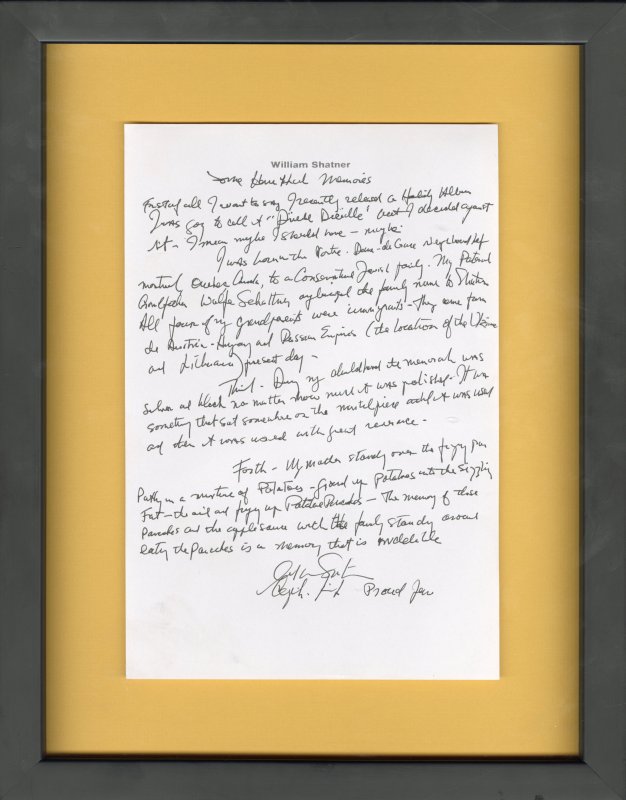 William Shatner
Some Hanukkah Memories
First of all I want to say I recently released a Holiday Album
I was going to call it "Dreidl Dreidl" but I decided against
it - I mean maybe I should have - maybe.
I was born in the Notre-Dame-de-Grace Neighbourhood of
Montreal Quebec Canada, to a Conservative Jewish family. My Paternal
Grandfather Wolfe Schattner anglicized the family name to Shatner
All four of my grandparents were immigrants - They came from
the Austria-Hungary and Russian Empires (the locations of the Ukraine
and Lithuania) present day -
Third - During my childhood the menorah was
silver and black no matter how much it was polished - It was
something that sat somewhere on the mantelpiece until it was used
and then it was used with great reverence -
Forth - My mother standing over the frying pan
Putting a mixture of Potatoes - ground up Potatoes into the sizzling
Fat - the oil and frying up Potatoe Pancakes - The memory of those
Pancakes and the applesauce with the family standing around
eating the Pancakes is a memory that is indelible
Proud Jew